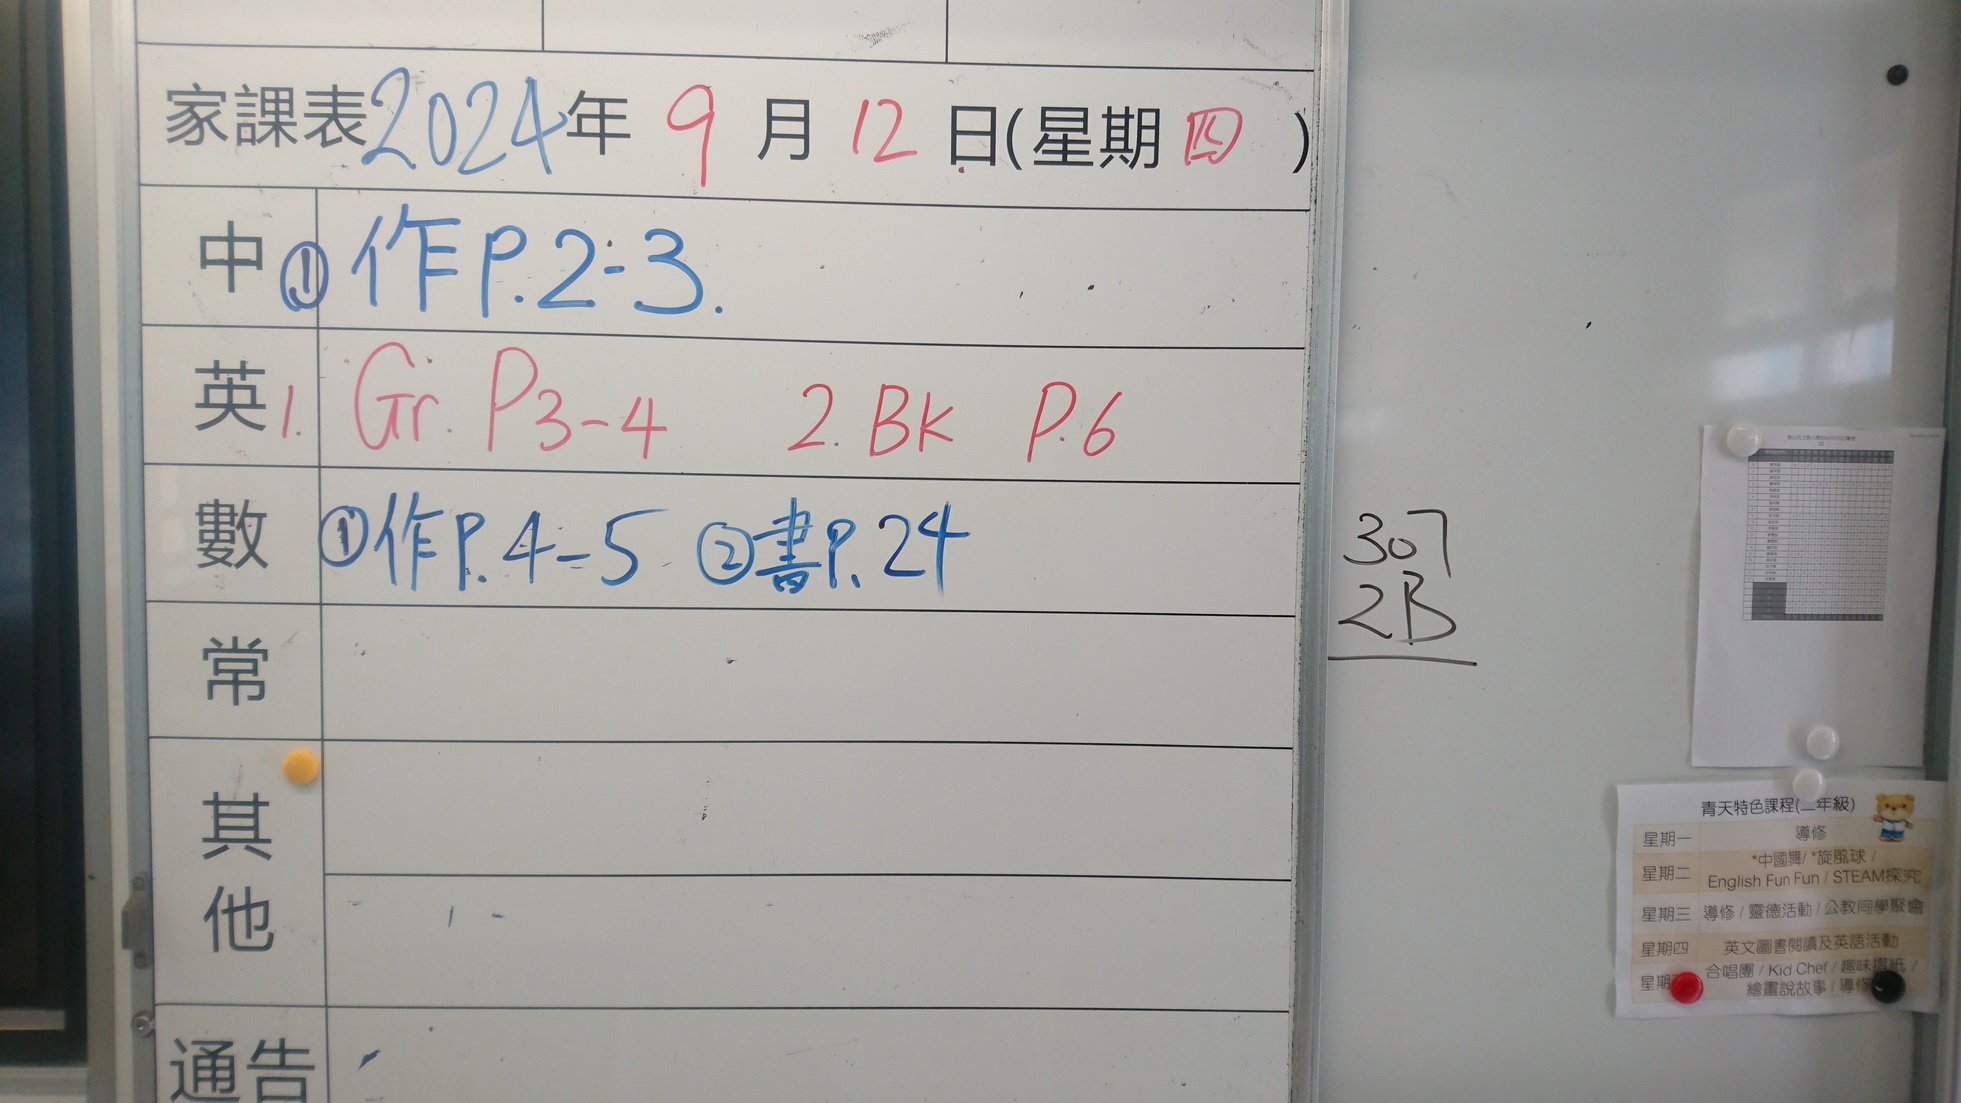 家課表2024年 9 月 12 日(星期 四 )
中 ① 作P.2-3.
英 1. Gr. P3-4 2. BK P.6
數 ①作P.4-5 ②書P.24
常
其他
通告
307
2B
青天特色課程(二年級)
星期一 導修
星期二 *中國舞/ *旋風球 /
English Fun Fun / STEAM探究
星期三 導修 / 靈德活動 / 公教同學聚會
星期四 英文圖書閱讀及英語活動
星期 合唱團 / Kid Chef / 趣味摺紙 /
繪畫說故事 / 導修